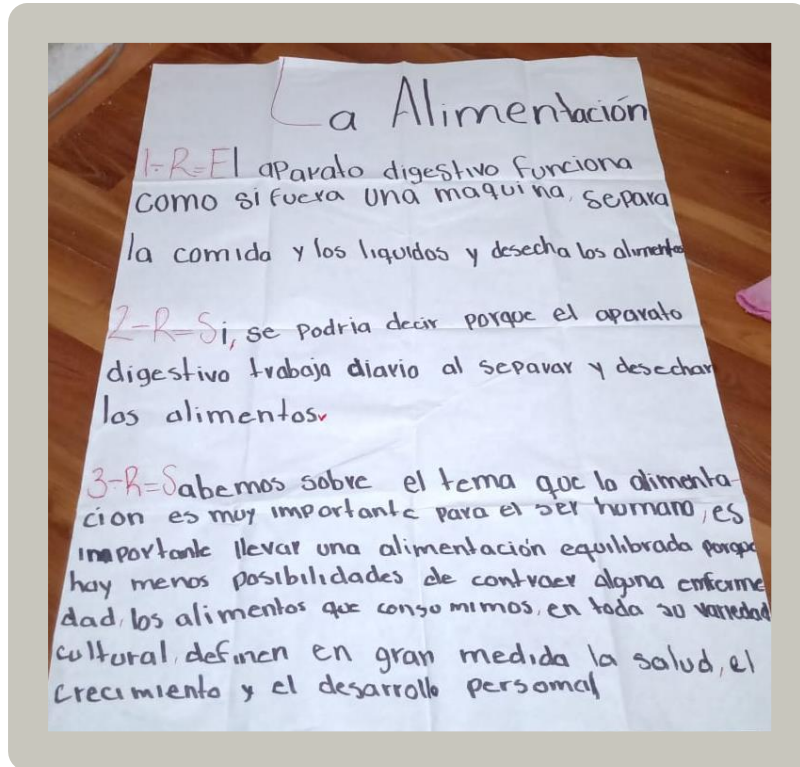 La Alimentación
1-R=El aparato digestivo funciona
como si fuera una maquina, separa
la comida y los liquidos y desecha los alimentos
2-R=Si, se podria decir porque el aparato
digestivo trabaja diario al separar y desechar
los alimentos.
3-R=Sabemos sobre el tema que la alimenta-
cion es muy importante para el ser humano, es
importante llevar una alimentación equilibrada porque
hay menos posibilidades de contraer alguna enferme
dad, los alimentos que consumimos, en toda su variedad
cultural, definen en gran medida la salud, el
crecimiento y el desarrollo personal